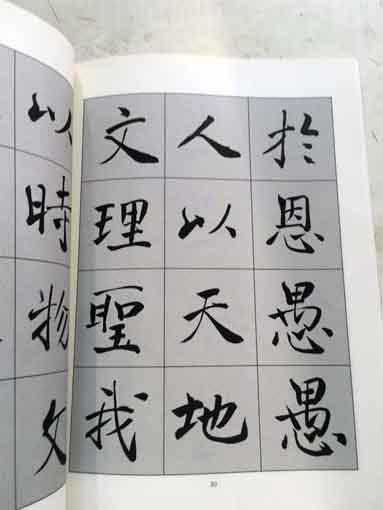 於恩愚愚
人以天地
文理聖我
以時物文